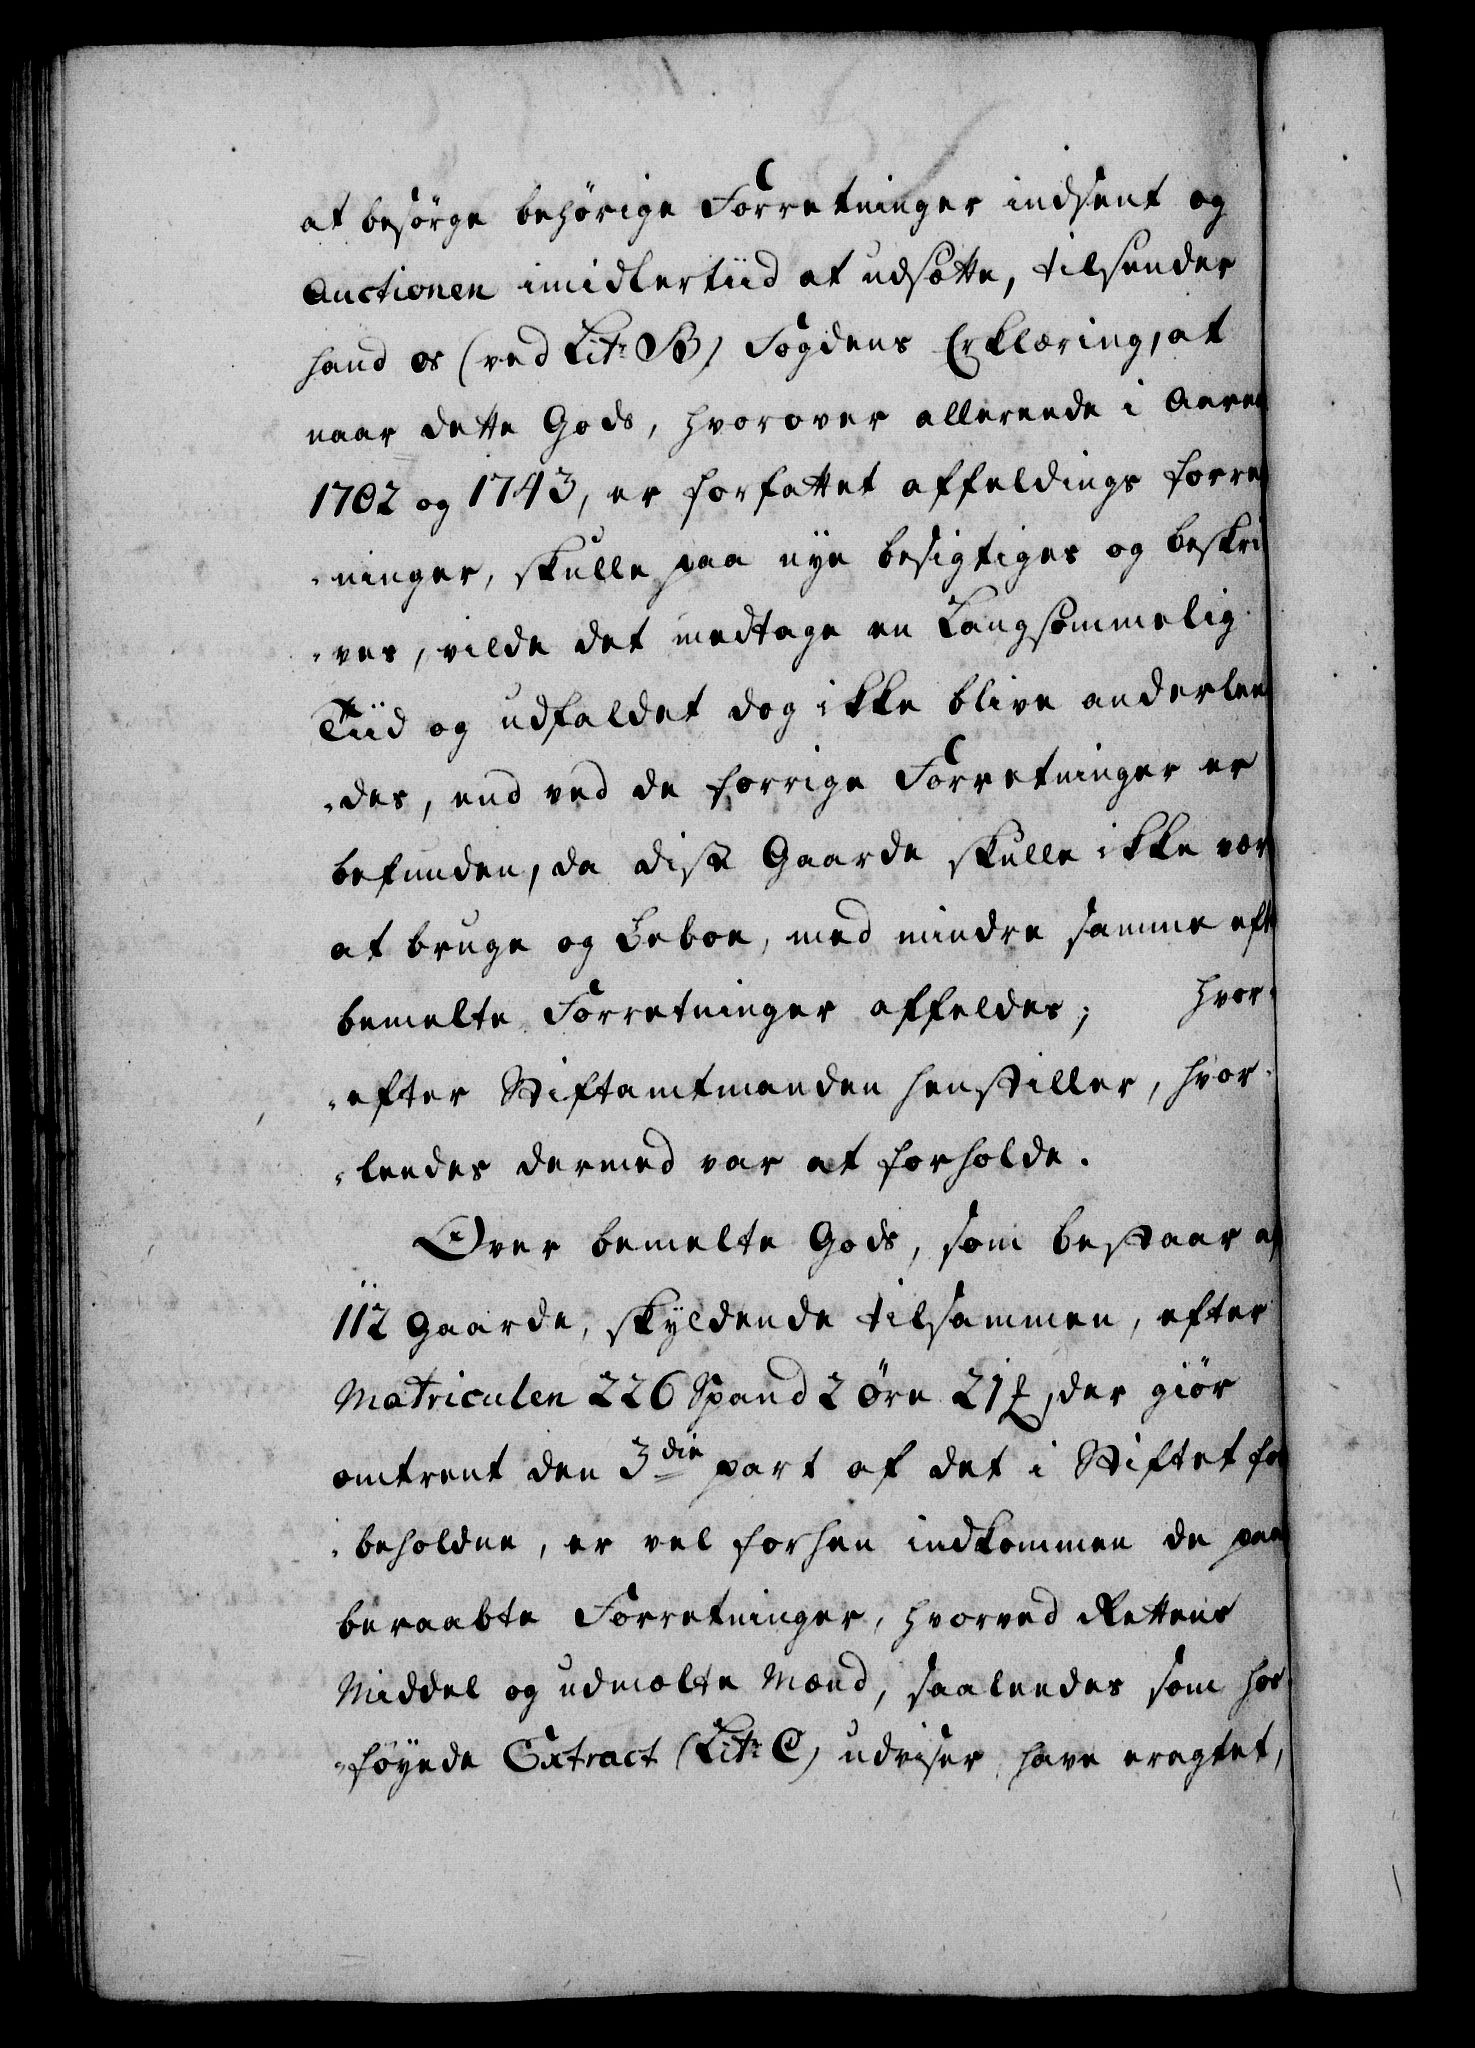 at besørge behørige Forretninger indsent og
Auctionen imidlertiid at udsætte, tilsender
hand os (ved Litr B) Fogdens Erklæring, at
naar dette Gods, hvorover allereede i Aaret
1702 og 1743, er forfattet affeldings forre
-ninger, skulle paa nye besigtiges og beskri
-ves, vilde det medtage en Langsommelig
Tiid og udfaldet dog ikke blive anderlee
-des, end ved de forrige Forretninger er
befunden, da disse Gaarde skulle ikke vær
at bruge og beboe, med mindre samme eft
bemelte Forretninger affeldes; hvor-
-efter Stiftamtmanden henstiller, hvor-
-leedes dermed var at forholde.
Over bemelte Gods, som bestaar af
112 Gaarde, skyldende tilsammen, efter
Matriculen 226 Spand 2 Øre, der giør
omtrent den 3die part af det i Stiftet for
-beholdne, er vel forhen indkommen de paa
beraabte Forretninger, hvorved Rettens
Middel og udmælte Mænd, saaleedes som hos
-føyede Extract (Litr C) udviser, have eragtet,